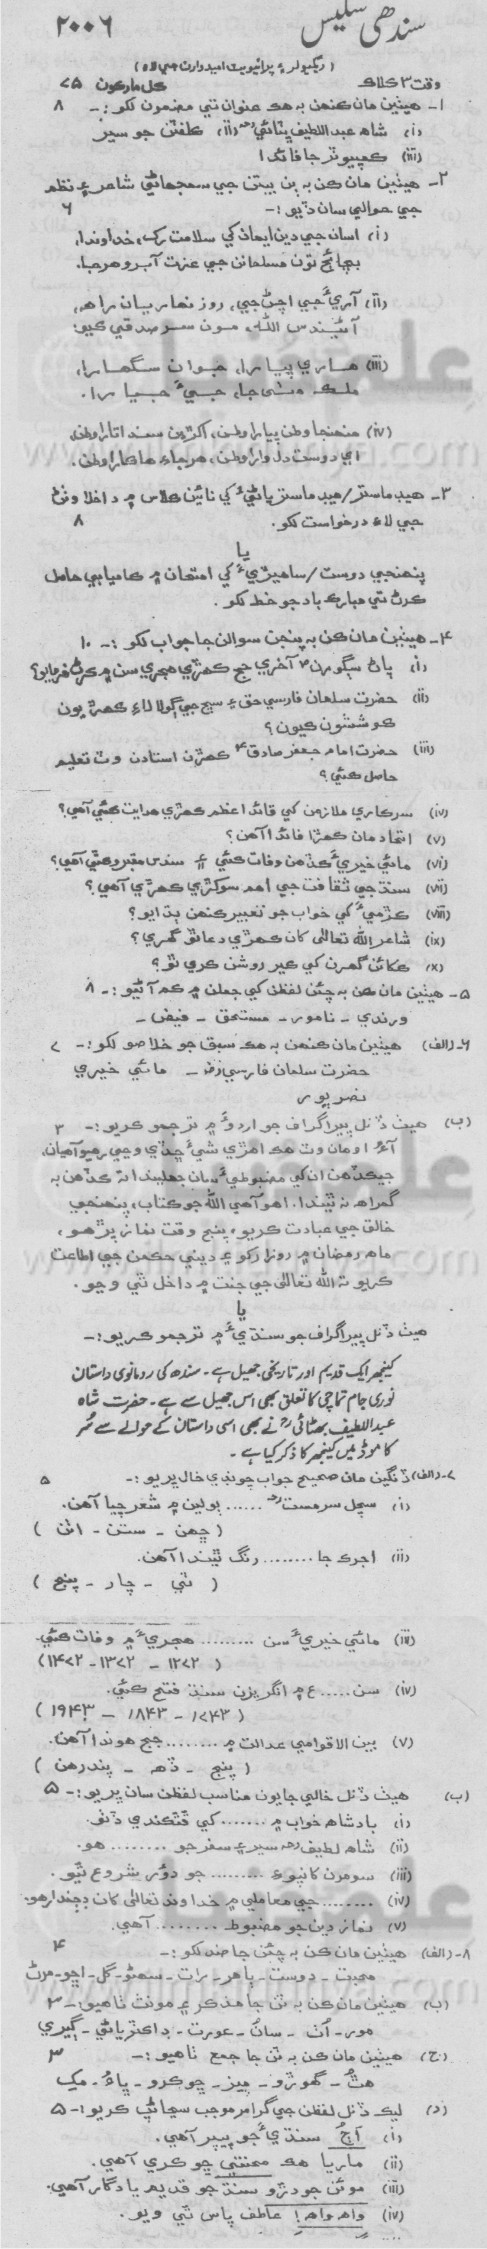 سنڌي سليس ٢٠٠٦
(ريگيولر ۽ پرائيويٽ اميدوارن جي لاءِ)
وقت ٣ ڪلاڪ ڪل مارڪون ٧٥
١- هيٺين مان ڪنهن به هڪ عنوان تي مضمون لکو :- ٨
(i) شاهه عبداللطيف ڀٽائيؒ (ii) ڪلفٽن جو سير
(iii) ڪمپيوٽر جا فائدا
٢- هيٺين مان ڪن به ٻن بيتن جي سمجهاڻي شاعر ۽ نظم
جي حوالي سان ڏيو :- ٦
(i) اسان جي دين ايمان کي سلامت رک، خداوندا،
بچائج تون مسلمانن جي عزت آبرو هرجا.
(ii) آريءَ جي اچڻ جي، روز نهاريان راهه،
آڻيندس الله، مون سر صدقي ڪيو.
(iii) هاري پيارا، جوان سگهارا،
ملڪ مٽيءَ جا، جيءَ جيارا.
(iv) منهنجا وطن پيارا وطن، اکڙين سندا تارا وطن،
اي دوست دلوارا وطن، هرجاءِ هاڪارا وطن.
٣- هيڊ ماستر/هيڊ ماسترياڻيءَ کي نائين ڪلاس ۾ داخلا وٺڻ
جي لاءِ درخواست لکو. ٨
يا
پنهنجي دوست/ساهيڙيءَ کي امتحان ۾ ڪاميابي حاصل
ڪرڻ تي مبارڪباد جو خط لکو.
٤- هيٺين مان ڪن به پنجن سوالن جا جواب لکو :- ١٠
(i) پاڻ سڳورنؐ آخري حج ڪهڙي هجري سن ۾ ڪرڻ فرمايو؟
(ii) حضرت سلمان فارسي حق ۽ سچ جي ڳولا لاءِ ڪهڙيون
ڪوششون ڪيون؟
(iii) حضرت امام جعفر صادقؑ ڪهڙن استادن وٽ تعليم
حاصل ڪئي؟
(iv) سرڪاري ملازمن کي قائد اعظم ڪهڙي هدايت ڪئي آهي؟
(v) اتحاد مان ڪهڙا فائدا آهن؟
(vi) مائي خيريءَ ڪڏهن وفات ڪئي ۽ سندس مقبرو ڪٿي آهي؟
(vii) سنڌ جي ثقافت جي اهم سوکڙي ڪهڙي آهي؟
(viii) ڪڙميءَ کي خواب جو تعبير ڪنهن ٻڌايو؟
(ix) شاعر الله تعاليٰ کان ڪهڙي دعا ٿو گهري؟
(x) ڪکائن گهرن کي ڪير روشن ڪري ٿو؟
٥- هيٺين مان ڪن به چئن لفظن کي جملن ۾ ڪم آڻيو :- ٨
ورندي - نامور - مستحق - فيض -
٦- (الف) هيٺين مان ڪنهن به هڪ سبق جو خلاصو لکو :- ٧
حضرت سلمان فارسيؓ - مائي خيري
نصرپور
(ب) هيٺ ڏنل پيراگراف جو اردوءَ ۾ ترجمو ڪريو :- ٣
آءٌ اوهان وٽ هڪ اهڙي شيءِ ڇڏي وڃي رهيو آهيان،
جيڪڏهن ان کي مضبوطيءَ سان جهليندا ته ڪڏهن به
گمراهه نه ٿيندا. اهو آهي الله جو ڪتاب، پنهنجي
خالق جي عبادت ڪريو، پنج وقت نماز پڙهو،
ماهه رمضان ۾ روزا رکو ۽ ديني حڪمن جي اطاعت
ڪريو ته الله تعاليٰ جي جنت ۾ داخل ٿي وڃو.
يا
هيٺ ڏنل پيراگراف جو سنڌيءَ ۾ ترجمو ڪريو :-
کینجھر ایک قدیم اور تاریخی جھیل ہے۔ سندھ کی رومانوی داستان
نوری جام تماچی کا تعلق بھی اس جھیل سے ہے۔ حضرت شاہ
عبداللطیف بھٹائیؒ نے بھی اسی داستان کے حوالے سے سُر
کاموڈ میں کینجھر کا ذکر کیا ہے۔
٧- (الف) ڏنگين مان صحيح جواب چونڊي خال ڀريو :- ٥
(i) سچل سرمستؒ ...... ٻولين ۾ شعر چيا آهن.
(ڇهن - ستن - اٺن)
(ii) اجرڪ جا ........ رنگ ٿيندا آهن.
(ٽي - چار - پنج)
(iii) مائي خيريءَ سن ......... هجريءَ ۾ وفات ڪئي.
(١٢٧٢ - ١٣٧٢ - ١٤٧٢)
(iv) سن ..... ع ۾ انگريزن سنڌ فتح ڪئي.
(١٧٤٣ - ١٨٤٣ - ١٩٤٣)
(v) بين الاقوامي عدالت ۾ ........ جج هوندا آهن.
(پنج - ڏهه - پندرهن)
(ب) هيٺ ڏنل خالي جايون مناسب لفظن سان ڀريو :- ٥
(i) بادشاهه خواب ۾ ....... کي ڦٽڪندي ڏٺو.
(ii) شاهه لطيفؒ سير ۽ سفر جو ........ هو.
(iii) سومرن کانپوءِ ......... جو دؤر شروع ٿيو.
(iv) ......... جي معاملي ۾ خداوند تعاليٰ کان ڊڄندا رهو.
(v) نماز دين جو مضبوط ........ آهي.
٨- (الف) هيٺين مان ڪن به چئن جا ضد لکو :- ٤
محبت - دوست - ٻاهر - رات - سهڻو - گل - اڇو - مرڻ
(ب) هيٺين مان ڪن به ٽن جا مذڪر ۽ مونث ٺاهيو :- ٣
مور - اُٺ - سانُ - عورت - ڊاڪٽرياڻي - ڳيري
(ج) هيٺين مان ڪن به ٽن جا جمع ٺاهيو :- ٣
هٿُ - گهوڙو - ميز - ڇوڪرو - ڀاءُ - مک
(د) ليڪ ڏنل لفظن جي گرامر موجب سڃاڻپ ڪريو :- ٥
(i) اڄُ سنڌيءَ جو پيپر آهي.
(ii) ماريا هڪ محنتي ڇوڪري آهي.
(iii) موئن جو دڙو سنڌ جو قديم يادگار آهي.
(iv) واهه واهه! عاطف پاس ٿي ويو.